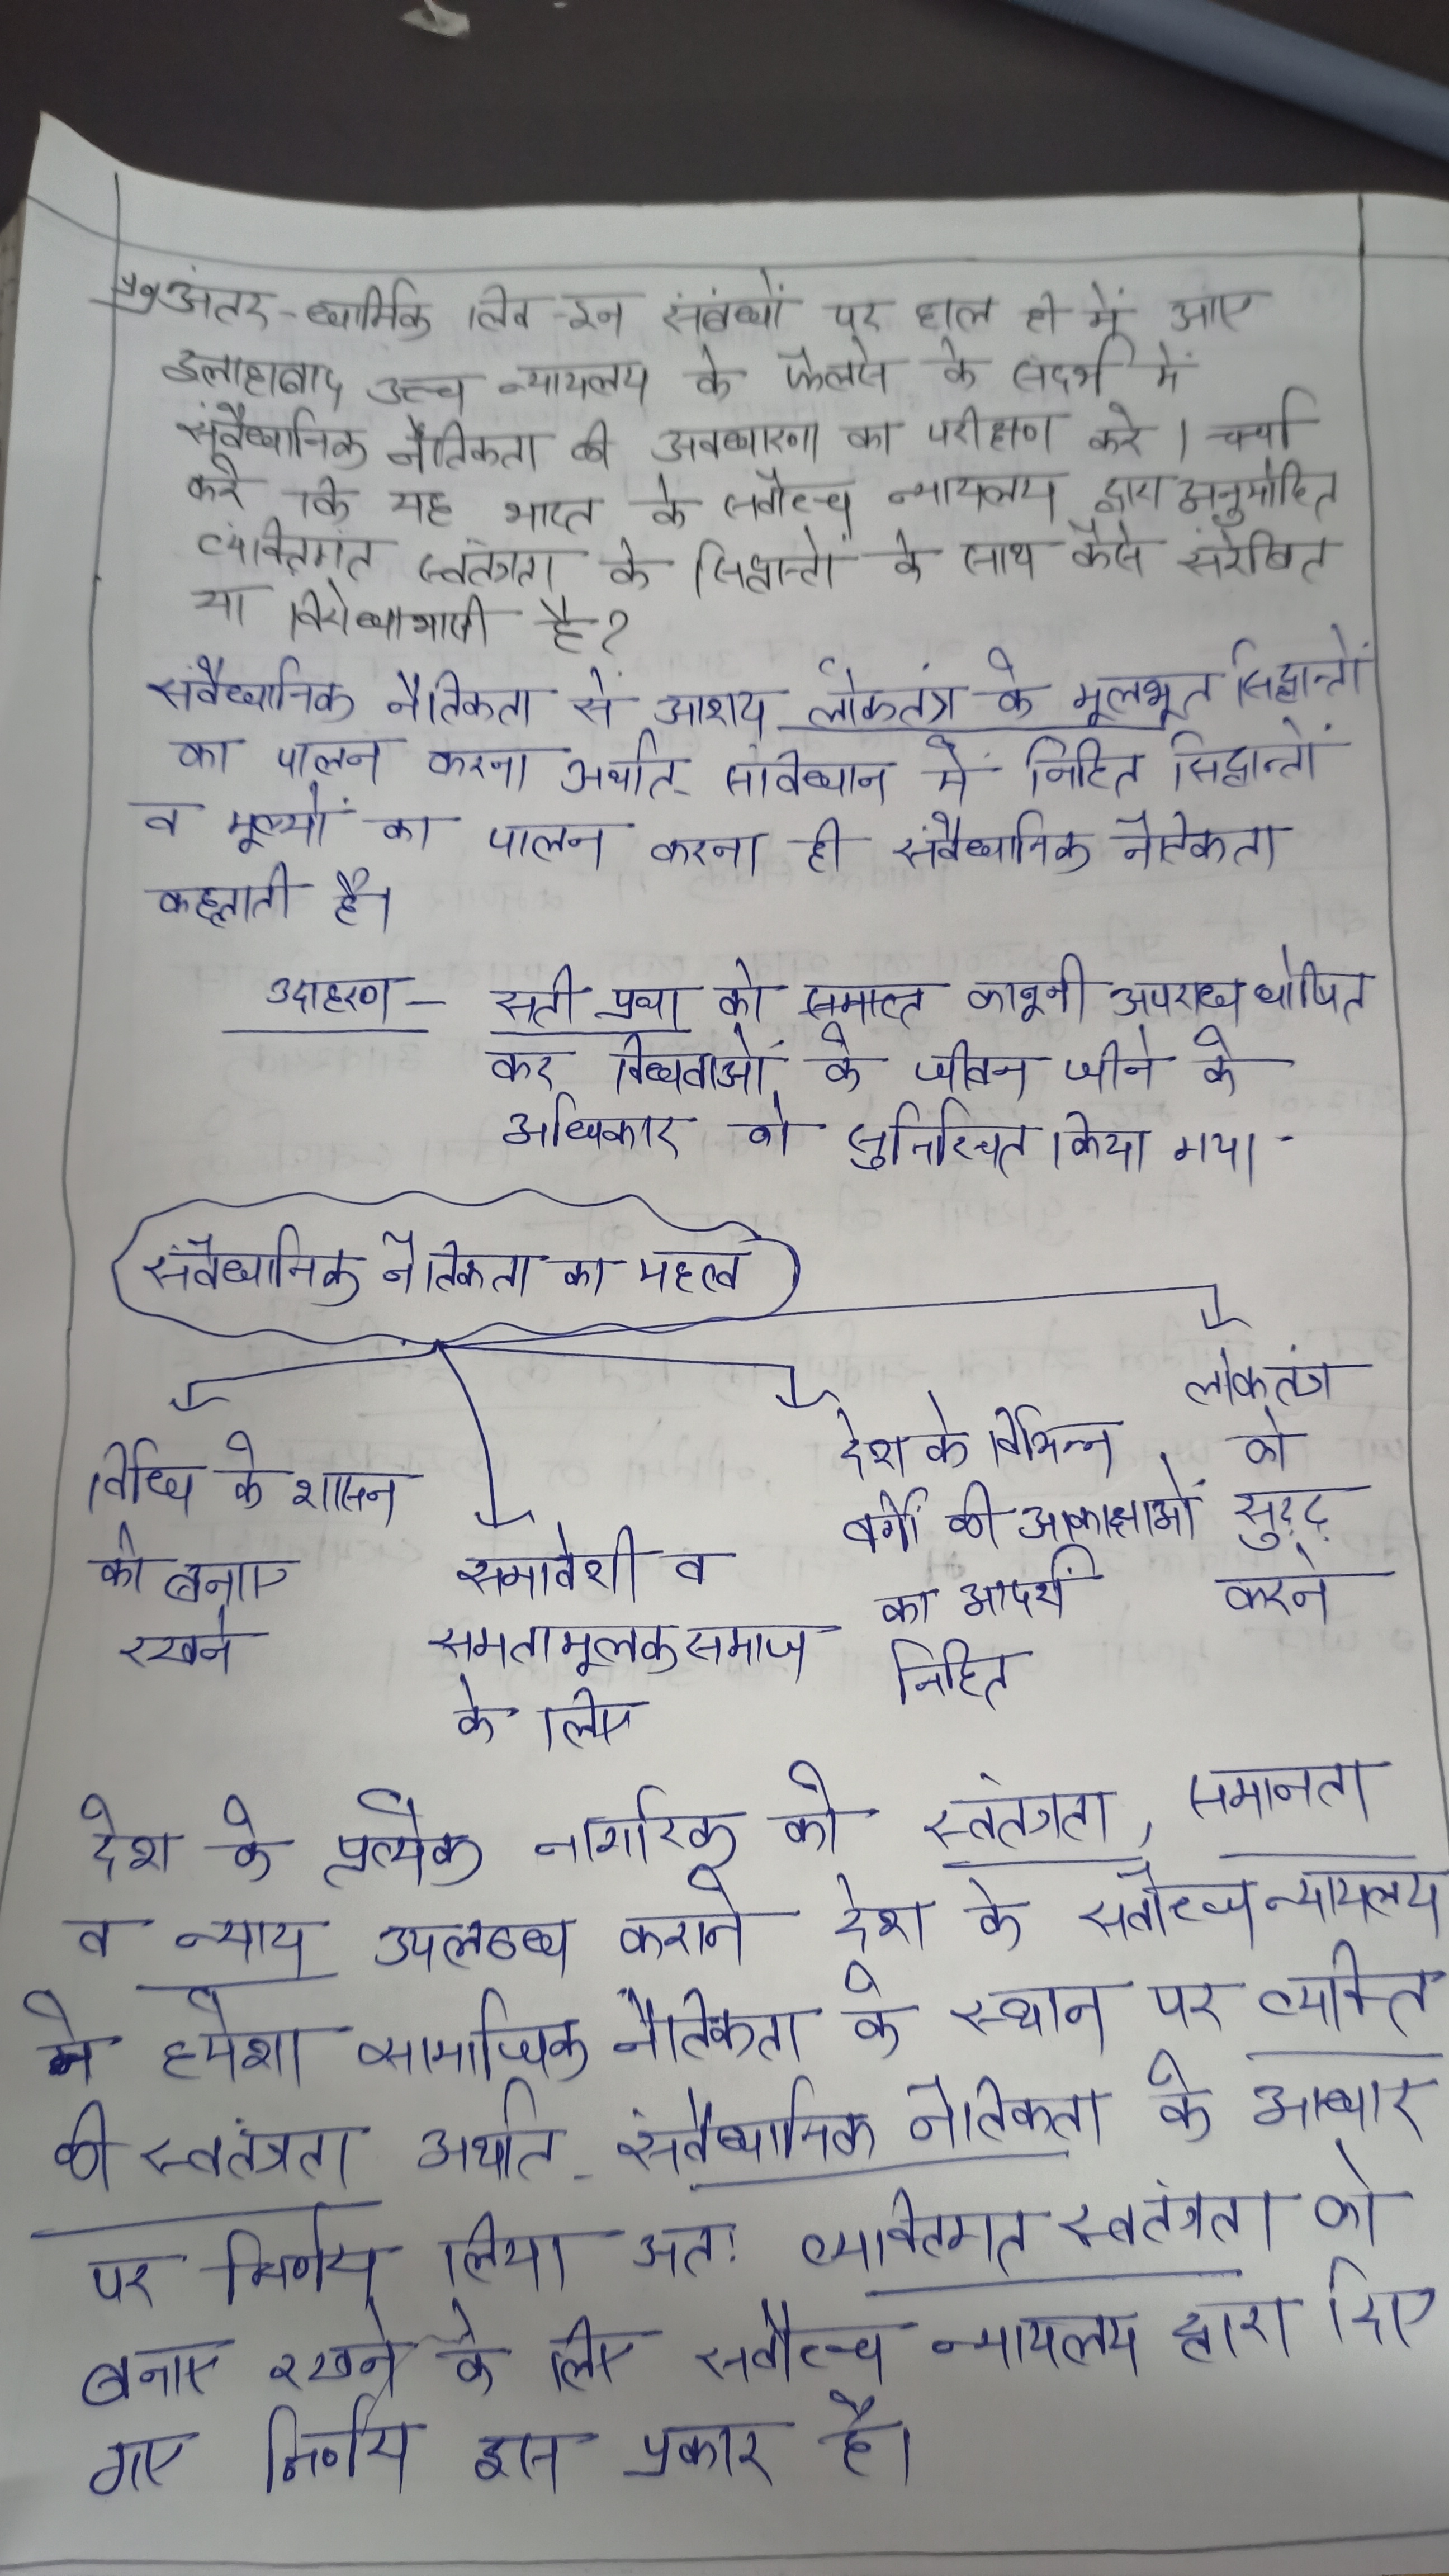 प्र० अंतर-धार्मिक लिव-इन संबंधों पर हाल ही में आए
इलाहाबाद उच्च न्यायलय के फैलसे के संदर्भ में
संवैधानिक नैतिकता की अवधारणा का परीक्षण करे। चर्चा
करें कि यह भारत के सर्वोच्च न्यायलय द्वारा अनुमोदित
व्यक्तिगत स्वंतत्रता के सिद्वान्तों के साथ कैसे संरेखित
या विरोधाभाषी है?
संवैधानिक नैतिकता से आशय लोकतंत्र के मूलभूत सिद्वान्तों
का पालन करना अर्थात संविधान में निहित सिद्वान्तों
व मूल्यों का पालन करना ही संवैधानिक नैतिकता
कहलाती है।
उदाहरण - सती प्रथा को समाप्त कानूनी अपराध घोषित
कर विधवाओं के जीवन जीने के
अधिकार को सुनिश्चित किया गया।
संवैधानिक नैतिकता का महत्व
विधि के शासन
को बनाए
रखने
समावेशी व
समतामूलक समाज
के लिए
देश के विभिन्न
वर्गों की आकाक्षाओं
का आदर्श
निहित
लोकतंत्र
को
सुदृढ़
करने
देश के प्रत्येक नागरिक को स्वंतत्रता, समानता
व न्याय उपलब्ध कराने देश के सर्वोच्च न्यायलय
ने हमेशा सामाजिक नैतिकता के स्थान पर व्यक्ति
की स्वतंत्रता अर्थात संवैधानिक नैतिकता के आधार
पर निर्णय लिया अतः व्यक्तिगत स्वतंत्रता को
बनाए रखने के लिए सर्वोच्च न्यायलय द्वारा दिए
गए निर्णय इस प्रकार है।